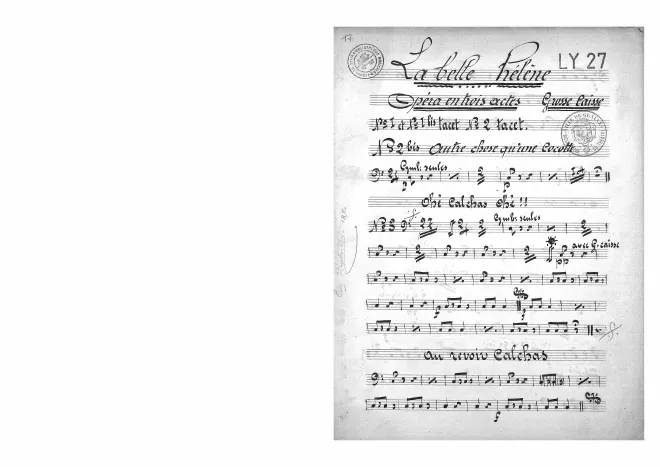 17
La belle Hélène
LY 27
Opéra en trois actes Grosse Caisse
Nº 1 et Nº 1 bis tacet. Nº 2 tacet.
Nº 2 bis Autre chose qu'une Cocotte
Cymb: seules
p
Ohé Calchas Ohé !!
Nº 3
Cymb: seules
avec G. caisse
pp
p
f
au revoir Calchas
f